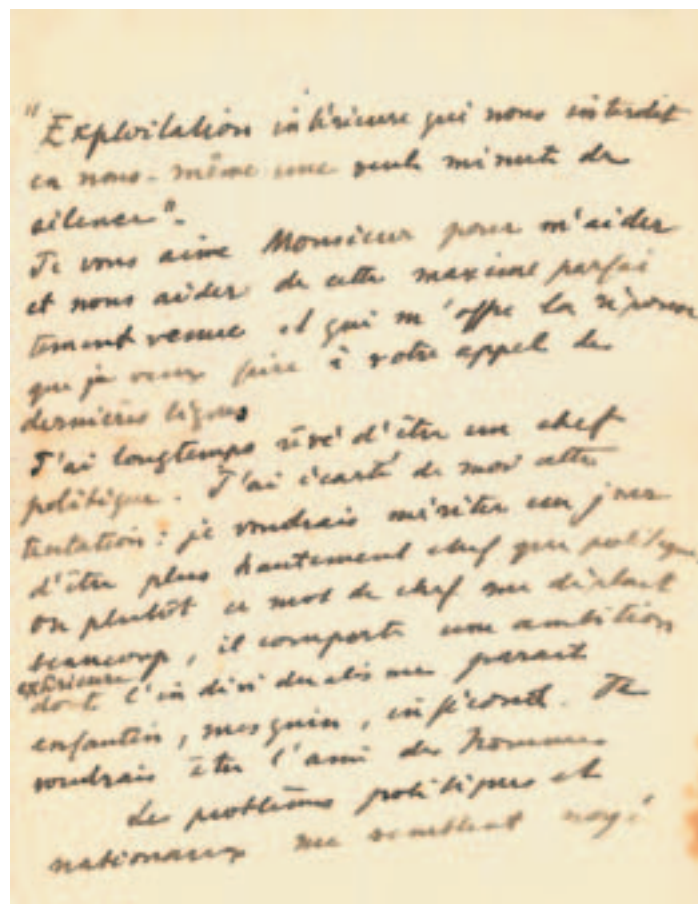 "Exploitation intérieure qui nous interdit
en nous-même une seule minute de
silence".
Je vous aime Monsieur pour m'aider
et nous aider de cette maxime parfai
tement venue et qui m'offre la réponse
que je veux faire à votre appel de
dernières lignes
J'ai longtemps rêvé d'être un chef
politique. J'ai écarté de moi cette
tentation : je voudrais mériter un jour
d'être plus hautement chef que politique
ou plutôt ce mot de chef me déplait
beaucoup, il comporte une ambition
extérieure
dont l'individualisme parait
enfantin, mesquin, infécond. Je
voudrais être l'ami des hommes
Les problèmes politiques et
nationaux me semblent